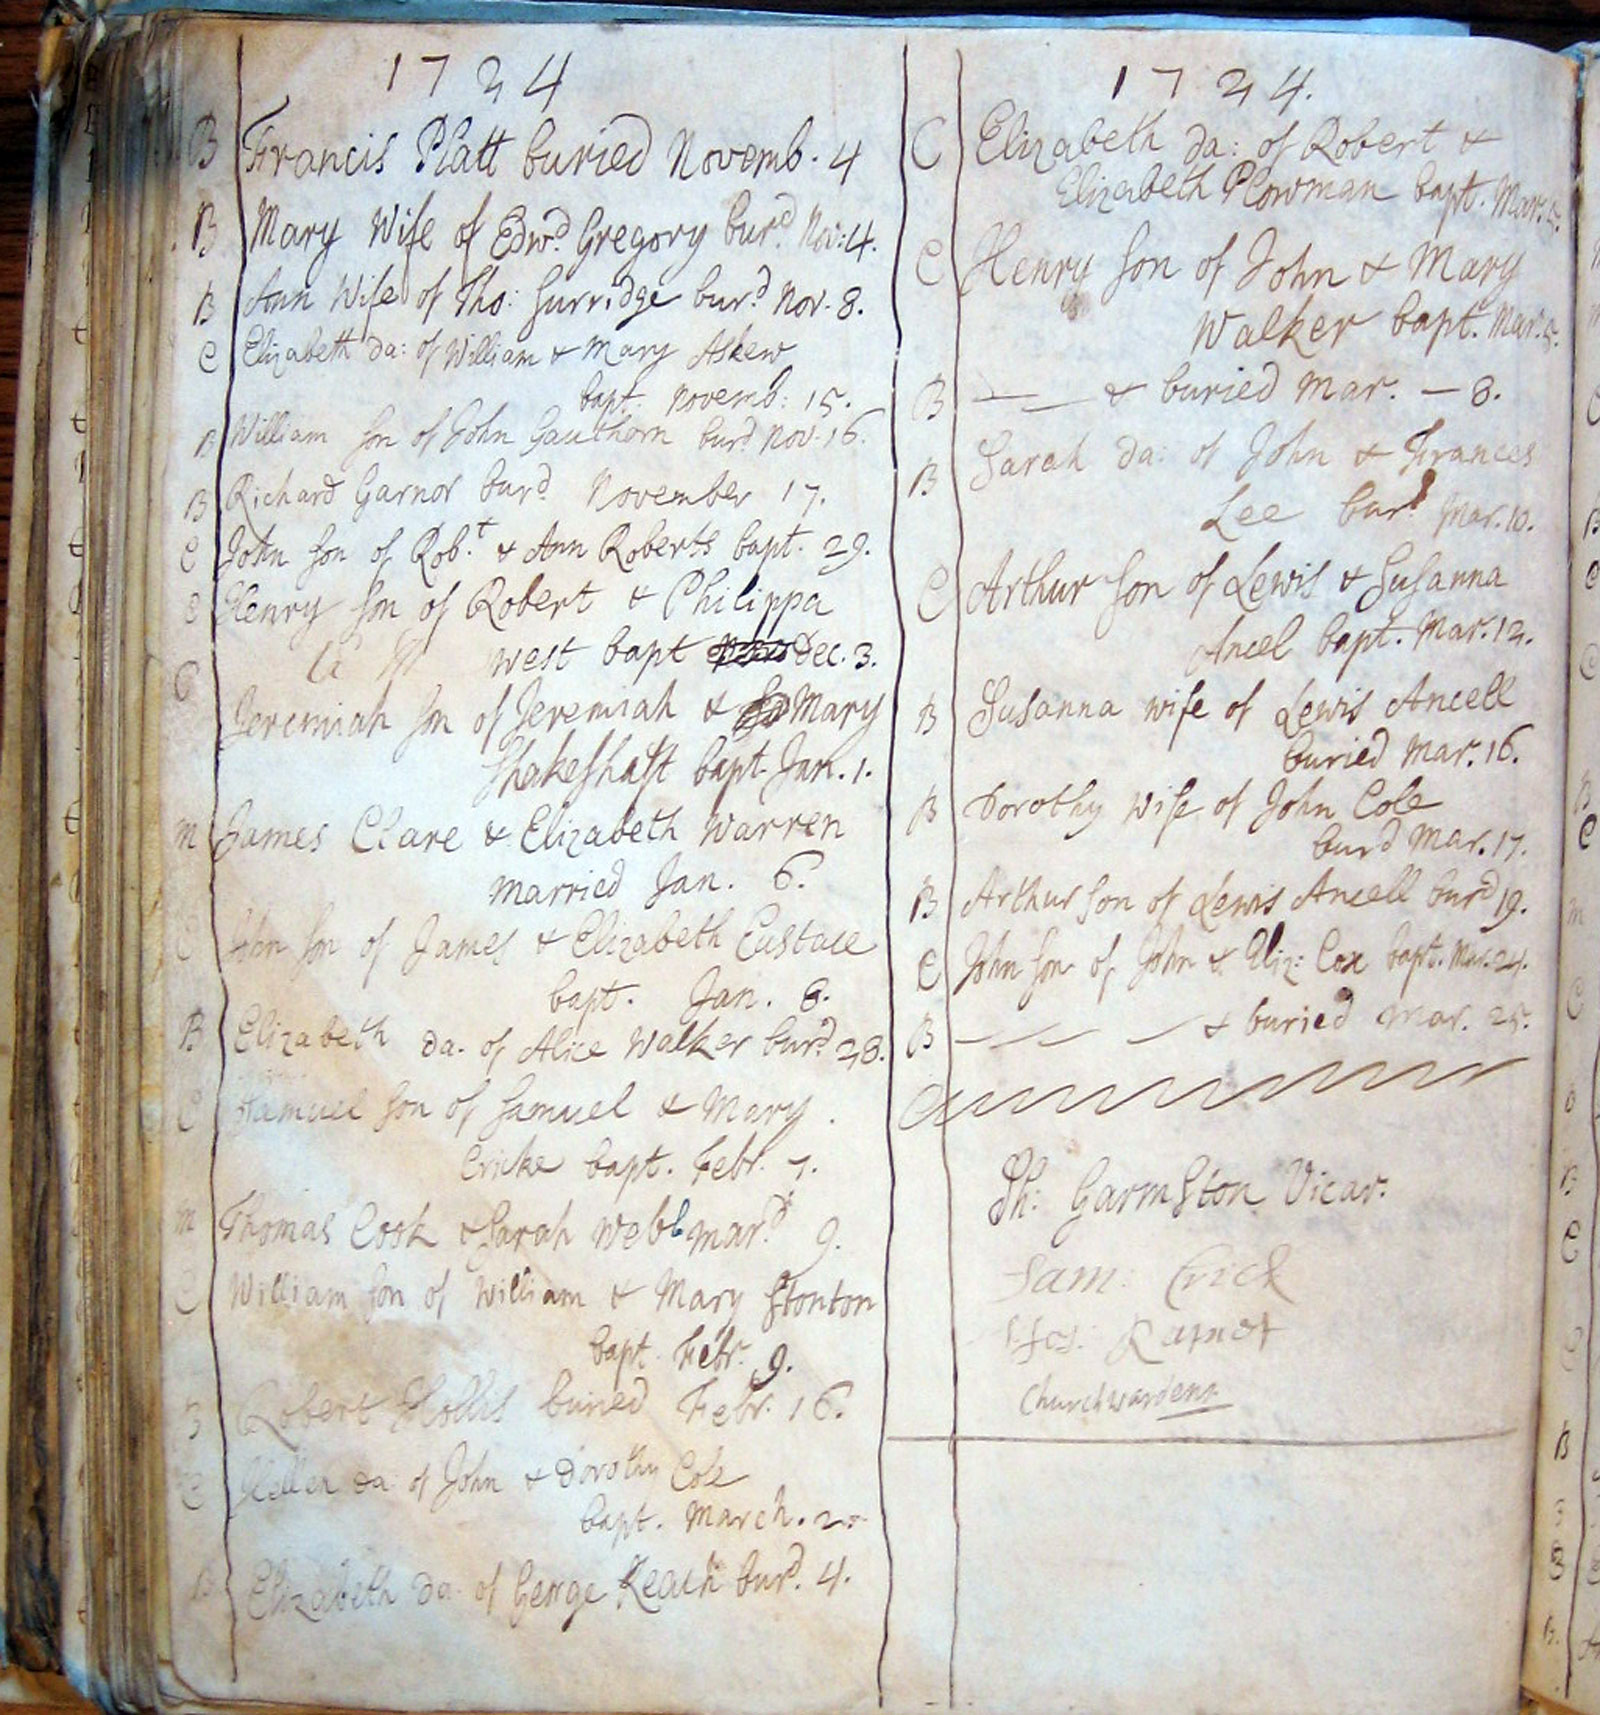 1724
B Francis Platt buried Novemb. 4
B Mary Wife of Edwd. Gregory burd. Nov: 4.
B Ann Wife of Tho: Surridge burd. Nov. 8.
C Elizabeth da: of William & Mary Askew
bapt. Novemb: 15.
B William Son of John Gauthorn burd. Nov. 16.
B Richard Garnor burd. November 17.
C John Son of Robt. & Ann Roberts bapt. 29.
C Henry Son of Robert & Philippa
West bapt Dec. 3.
C Jeremiah Son of Jeremiah & Mary
Shakeshaft bapt. Jan. 1.
M James Clare & Elizabeth Warren
Married Jan. 6.
C John Son of James & Elizabeth Eustace
bapt. Jan. 8.
B Elizabeth da. of Alice Walker burd. 28.
C Samuel Son of Samuel & Mary.
Cricke bapt. Febr. 7.
M Thomas Cook & Sarah Webb mard. 9.
C William Son of William & Mary Stonton
bapt. Febr. 9.
B Robert Hollis buried Febr. 16.
C Hellen da: of John & Dorothy Cole
bapt. March. 2
B Elizabeth da. of George Keach burd. 4.
1724.
C Elizabeth da: of Robert &
Elizabeth Plowman bapt. Mar. 5.
C Henry Son of John & Mary
Walker bapt. Mar. 5.
B — — & buried Mar. — 8.
B Sarah da: of John & Frances
Lee burd. Mar. 10.
C Arthur Son of Lewis & Susanna
Ancel bapt. Mar. 12.
B Susanna wife of Lewis Ancell
buried Mar. 16.
B Dorothy Wife of John Cole
burd Mar. 17.
B Arthur Son of Lewis Ancell burd 19.
C John Son of John & Eliz: Cox bapt. Mar. 24.
B — — — & buried Mar. 25.
Th: Garmston Vicar.
Sam: Crick
Churchwardens